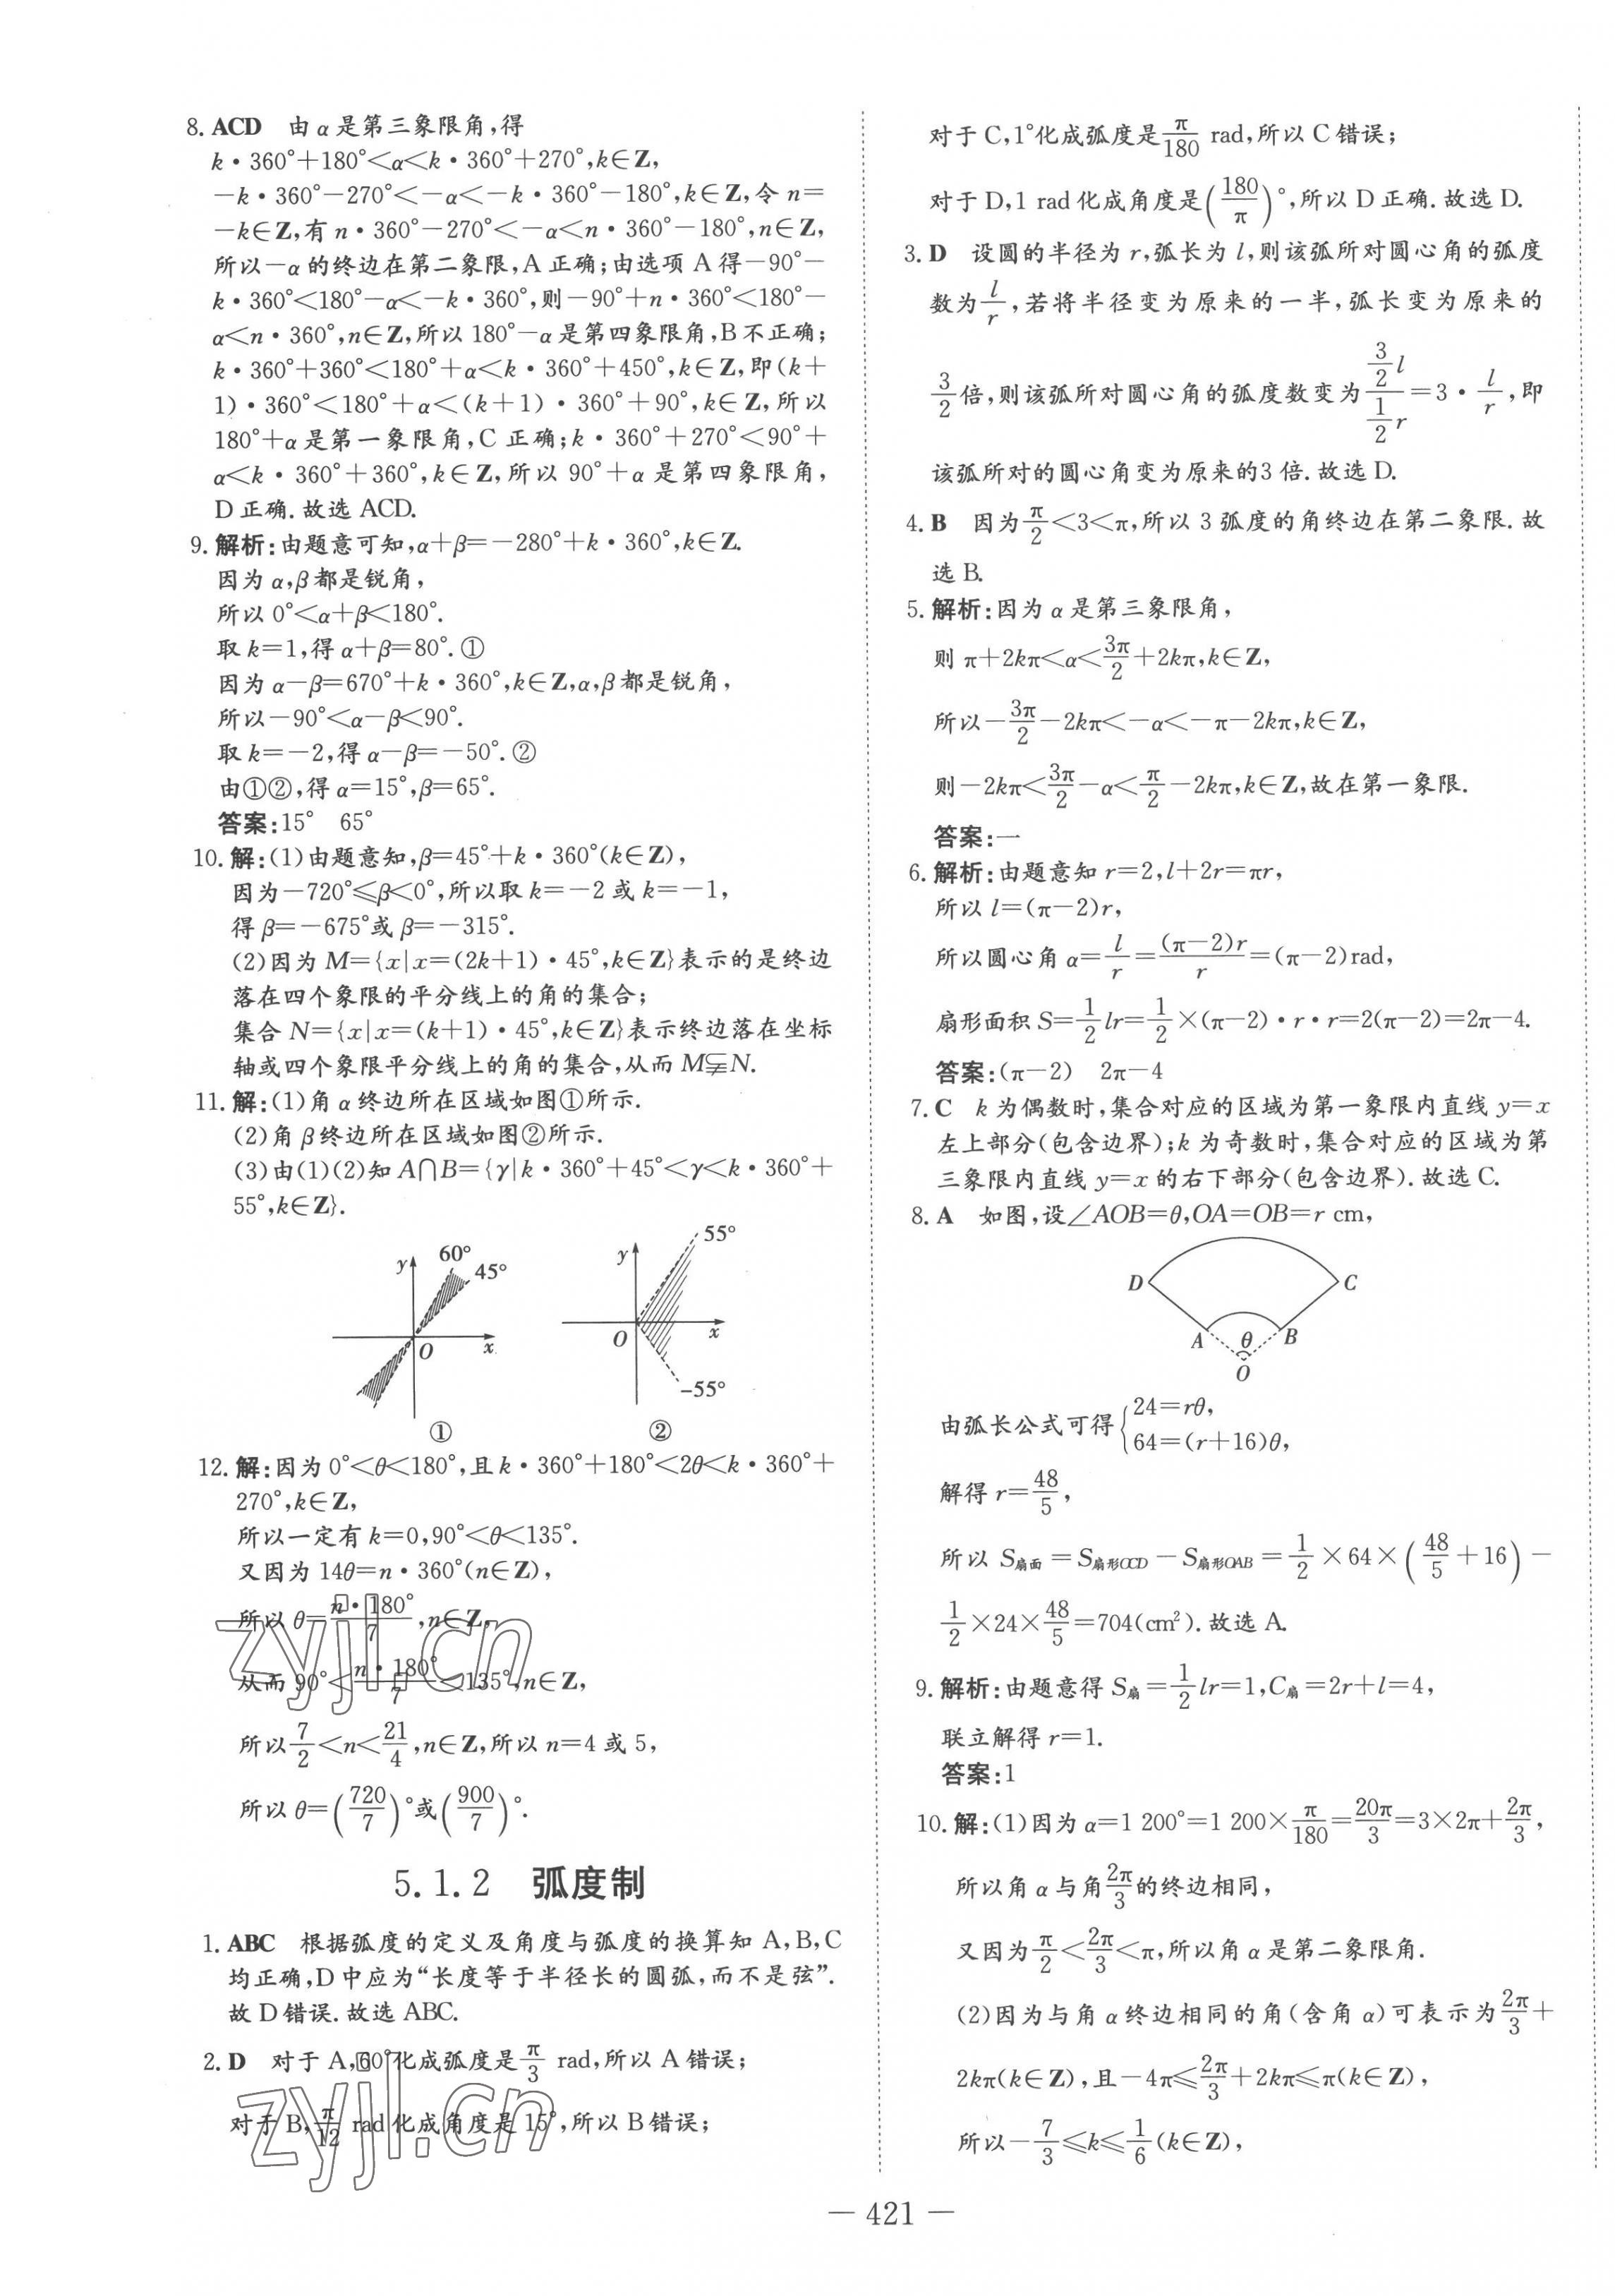 8. ACD 由α是第三象限角,得
k·360°+180°<α<k·360°+270°,k∈Z,
-k·360°-270°<-α<-k·360°-180°,k∈Z,令 n=
-k∈Z,有 n·360°-270°<-α<n·360°-180°,n∈Z,
所以-α的终边在第二象限,A正确;由选项A得-90°-
k·360°<180°-α<-k·360°,则-90°+n·360°<180°-
α<n·360°,n∈Z,所以180°-α是第四象限角,B不正确;
k·360°+360°<180°+α<k·360°+450°,k∈Z,即(k+
1)·360°<180°+α<(k+1)·360°+90°,k∈Z,所以
180°+α是第一象限角,C正确;k·360°+270°<90°+
α<k·360°+360°,k∈Z,所以90°+α是第四象限角,
D正确.故选ACD.
9. 解析:由题意可知,α+β=-280°+k·360°,k∈Z.
因为α,β都是锐角,
所以0°<α+β<180°.
取k=1,得α+β=80°.①
因为α-β=670°+k·360°,k∈Z,α,β都是锐角,
所以-90°<α-β<90°.
取k=-2,得α-β=-50°.②
由①②,得α=15°,β=65°.
答案:15° 65°
10. 解:(1)由题意知,β=45°+k·360°(k∈Z),
因为-720°≤β<0°,所以取k=-2或k=-1,
得β=-675°或β=-315°.
(2)因为M={x|x=(2k+1)·45°,k∈Z}表示的是终边
落在四个象限的平分线上的角的集合;
集合N={x|x=(k+1)·45°,k∈Z}表示终边落在坐标
轴或四个象限平分线上的角的集合,从而M⫋N.
11. 解:(1)角α终边所在区域如图①所示.
(2)角β终边所在区域如图②所示.
(3)由(1)(2)知A∩B={γ|k·360°+45°<γ<k·360°+
55°,k∈Z}.
y 60° 45° O x ①
y 55° O x -55° ②
12. 解:因为0°<θ<180°,且k·360°+180°<2θ<k·360°+
270°,k∈Z,
所以一定有k=0,90°<θ<135°.
又因为14θ=n·360°(n∈Z),
所以θ=n·180°/7,n∈Z,
从而90°<n·180°/7<135°,n∈Z,
所以7/2<n<21/4,n∈Z,所以n=4或5,
所以θ=(720/7)°或(900/7)°.
5.1.2 弧度制
1. ABC 根据弧度的定义及角度与弧度的换算知A,B,C
均正确,D中应为“长度等于半径长的圆弧,而不是弦”.
故D错误.故选ABC.
2. D 对于A,60°化成弧度是π/3 rad,所以A错误;
对于B,π/12 rad化成角度是15°,所以B错误;
对于C,1°化成弧度是π/180 rad,所以C错误;
对于D,1 rad化成角度是(180/π)°,所以D正确.故选D.
3. D 设圆的半径为r,弧长为l,则该弧所对圆心角的弧度
数为l/r,若将半径变为原来的一半,弧长变为原来的
3/2倍,则该弧所对圆心角的弧度数变为(3/2 l)/(1/2 r)=3·l/r,即
该弧所对的圆心角变为原来的3倍.故选D.
4. B 因为π/2<3<π,所以3弧度的角终边在第二象限.故
选B.
5. 解析:因为α是第三象限角,
则π+2kπ<α<3π/2+2kπ,k∈Z,
所以-3π/2-2kπ<-α<-π-2kπ,k∈Z,
则-2kπ<3π/2-α<π/2-2kπ,k∈Z,故在第一象限.
答案:一
6. 解析:由题意知r=2,l+2r=πr,
所以l=(π-2)r,
所以圆心角α=l/r=(π-2)r/r=(π-2)rad,
扇形面积S=1/2 lr=1/2×(π-2)·r·r=2(π-2)=2π-4.
答案:(π-2) 2π-4
7. C k为偶数时,集合对应的区域为第一象限内直线y=x
左上部分(包含边界);k为奇数时,集合对应的区域为第
三象限内直线y=x的右下部分(包含边界).故选C.
8. A 如图,设∠AOB=θ,OA=OB=r cm,
D C
A θ B
O
由弧长公式可得{24=rθ,
64=(r+16)θ,
解得r=48/5,
所以S扇面=S扇形OCD-S扇形OAB=1/2×64×(48/5+16)-
1/2×24×48/5=704(cm²).故选A.
9. 解析:由题意得S扇=1/2 lr=1,C扇=2r+l=4,
联立解得r=1.
答案:1
10. 解:(1)因为α=1 200°=1 200×π/180=20π/3=3×2π+2π/3,
所以角α与角2π/3的终边相同,
又因为π/2<2π/3<π,所以角α是第二象限角.
(2)因为与角α终边相同的角(含角α)可表示为2π/3+
2kπ(k∈Z),且-4π≤2π/3+2kπ≤π(k∈Z),
所以-7/3≤k≤1/6(k∈Z),
— 421 —
zyjl.cn
zyjl.cn